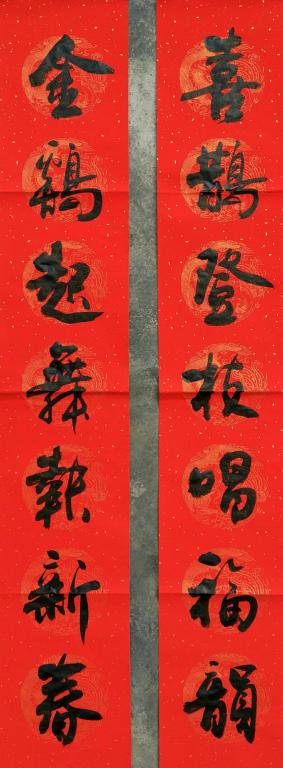 喜鵲登枝唱福韻
金鷄起舞報新春